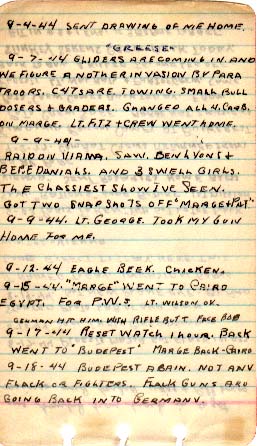 9-4-44 SENT DRAWING OF ME HOME.
"GREESE"
9-7-44 GLIDERS ARE COMING IN. AND
WE FIGURE ANOTHER INVASION BY PARA
TROOPERS. C47S ARE TOWING. SMALL BULL
DOSERS & GRADERS. CHANGED ALL 4. CARB.
ON MARGE. LT. FITZ & CREW WENT HOME.
9-9-44-
RAID ON VIANA. SAW. BEN LYONS &
BEBE DANIALS. AND 3 SWELL GIRLS.
THE CLASSIEST SHOW I'VE SEEN.
GOT TWO SNAPSHOTS OFF "MARGE & PAT"
9-9-44. LT. GEORGE. TOOK MY GUN
HOME FOR ME.
9-12-44 EAGLE BEEK. CHICKEN.
9-15-44. "MARGE" WENT TO CAIRO
EGYPT. FOR P.W.S. LT. WILSON. OK.
GERMAN HIT HIM. WITH RIFLE BUTT. FACE BOB
9-17-44 RESET WATCH 1 HOUR. BACK
WENT TO "BUDEPEST" MARGE BACK-CAIRO
9-18-44 BUDEPEST AGAIN. NOT ANY
FLACK OR FIGHTERS. FLACK GUNS ARE
GOING BACK INTO GERMANY.